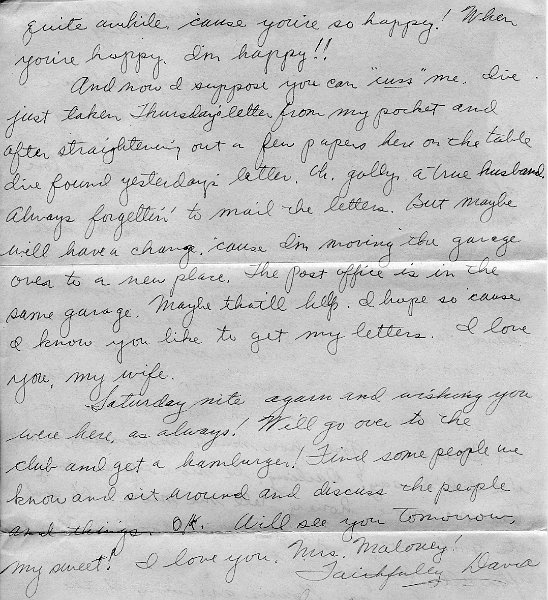 quite awhile, 'cause you're so happy! When
you're happy, I'm happy!!
And now I suppose you can "cuss" me. I've
just taken Thursday's letter from my pocket and
after straightening out a few papers here on the table
I've found yesterday's letter. Oh, golly, a true husband.
Always forgettin' to mail the letters. But maybe
will have a change, 'cause I'm moving the garage
over to a new place. The post office is in the
same garage. Maybe that'll help. I hope so 'cause
I know you like to get my letters. I love
you, my wife.
Saturday nite again and wishing you
were here, as always! Will go over to the
club and get a hamburger! Find some people we
know and sit around and discuss the people
and things. OK. Will see you tomorrow,
my sweet! I love you, Mrs. Maloney!
Faithfully Dave